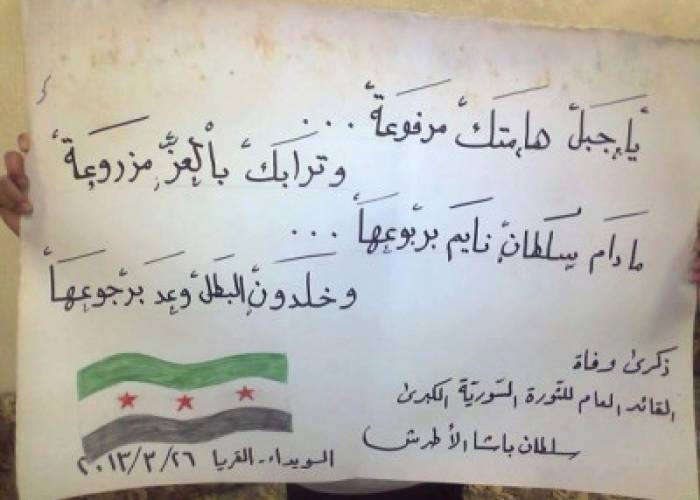 يا جبل هامتك مرفوعة ...
وترابك بالعز مزروعة
مادام سلطان نايم بربوعها ...
وخلدون البطل وعد برجوعها
ذكرى وفاة
القائد العام للثورة السورية الكبرى
سلطان باشا الأطرش
السويداء - القريا ٢٠١٣/٣/٢٦